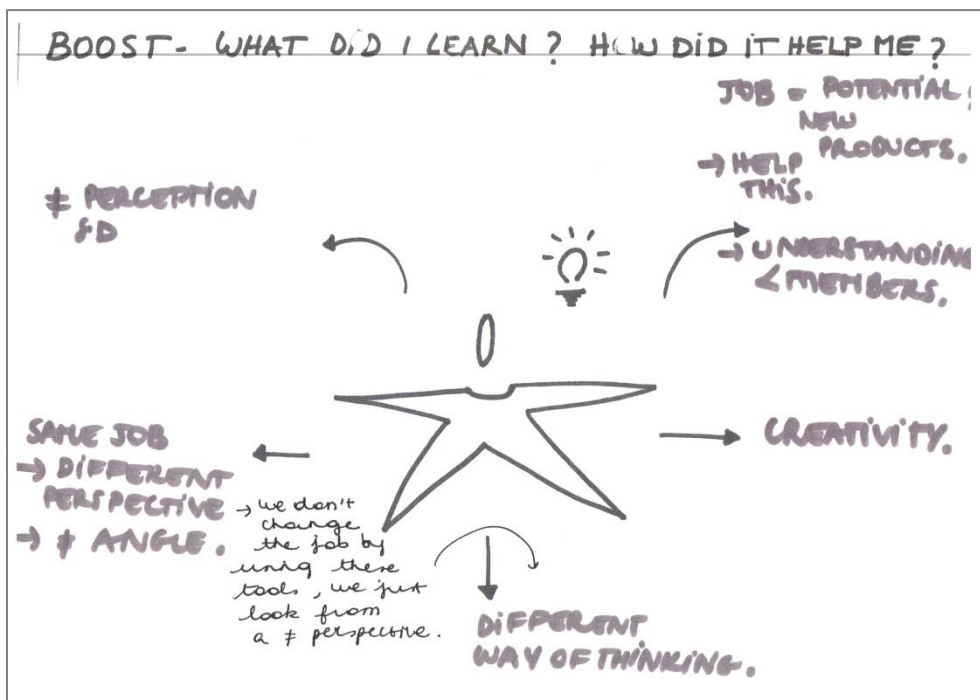 BOOST - WHAT DID I LEARN? HOW DID IT HELP ME?
≠ PERCEPTION
& D
JOB = POTENTIAL
NEW
PRODUCTS.
→ HELP
THIS.
→ UNDERSTANDING
< MEMBERS.
SAME JOB
→ DIFFERENT
PERSPECTIVE
→ ≠ ANGLE.
→ we don't
change
the job by
using these
tools, we just
look from
a ≠ perspective.
CREATIVITY.
DIFFERENT
WAY OF THINKING.